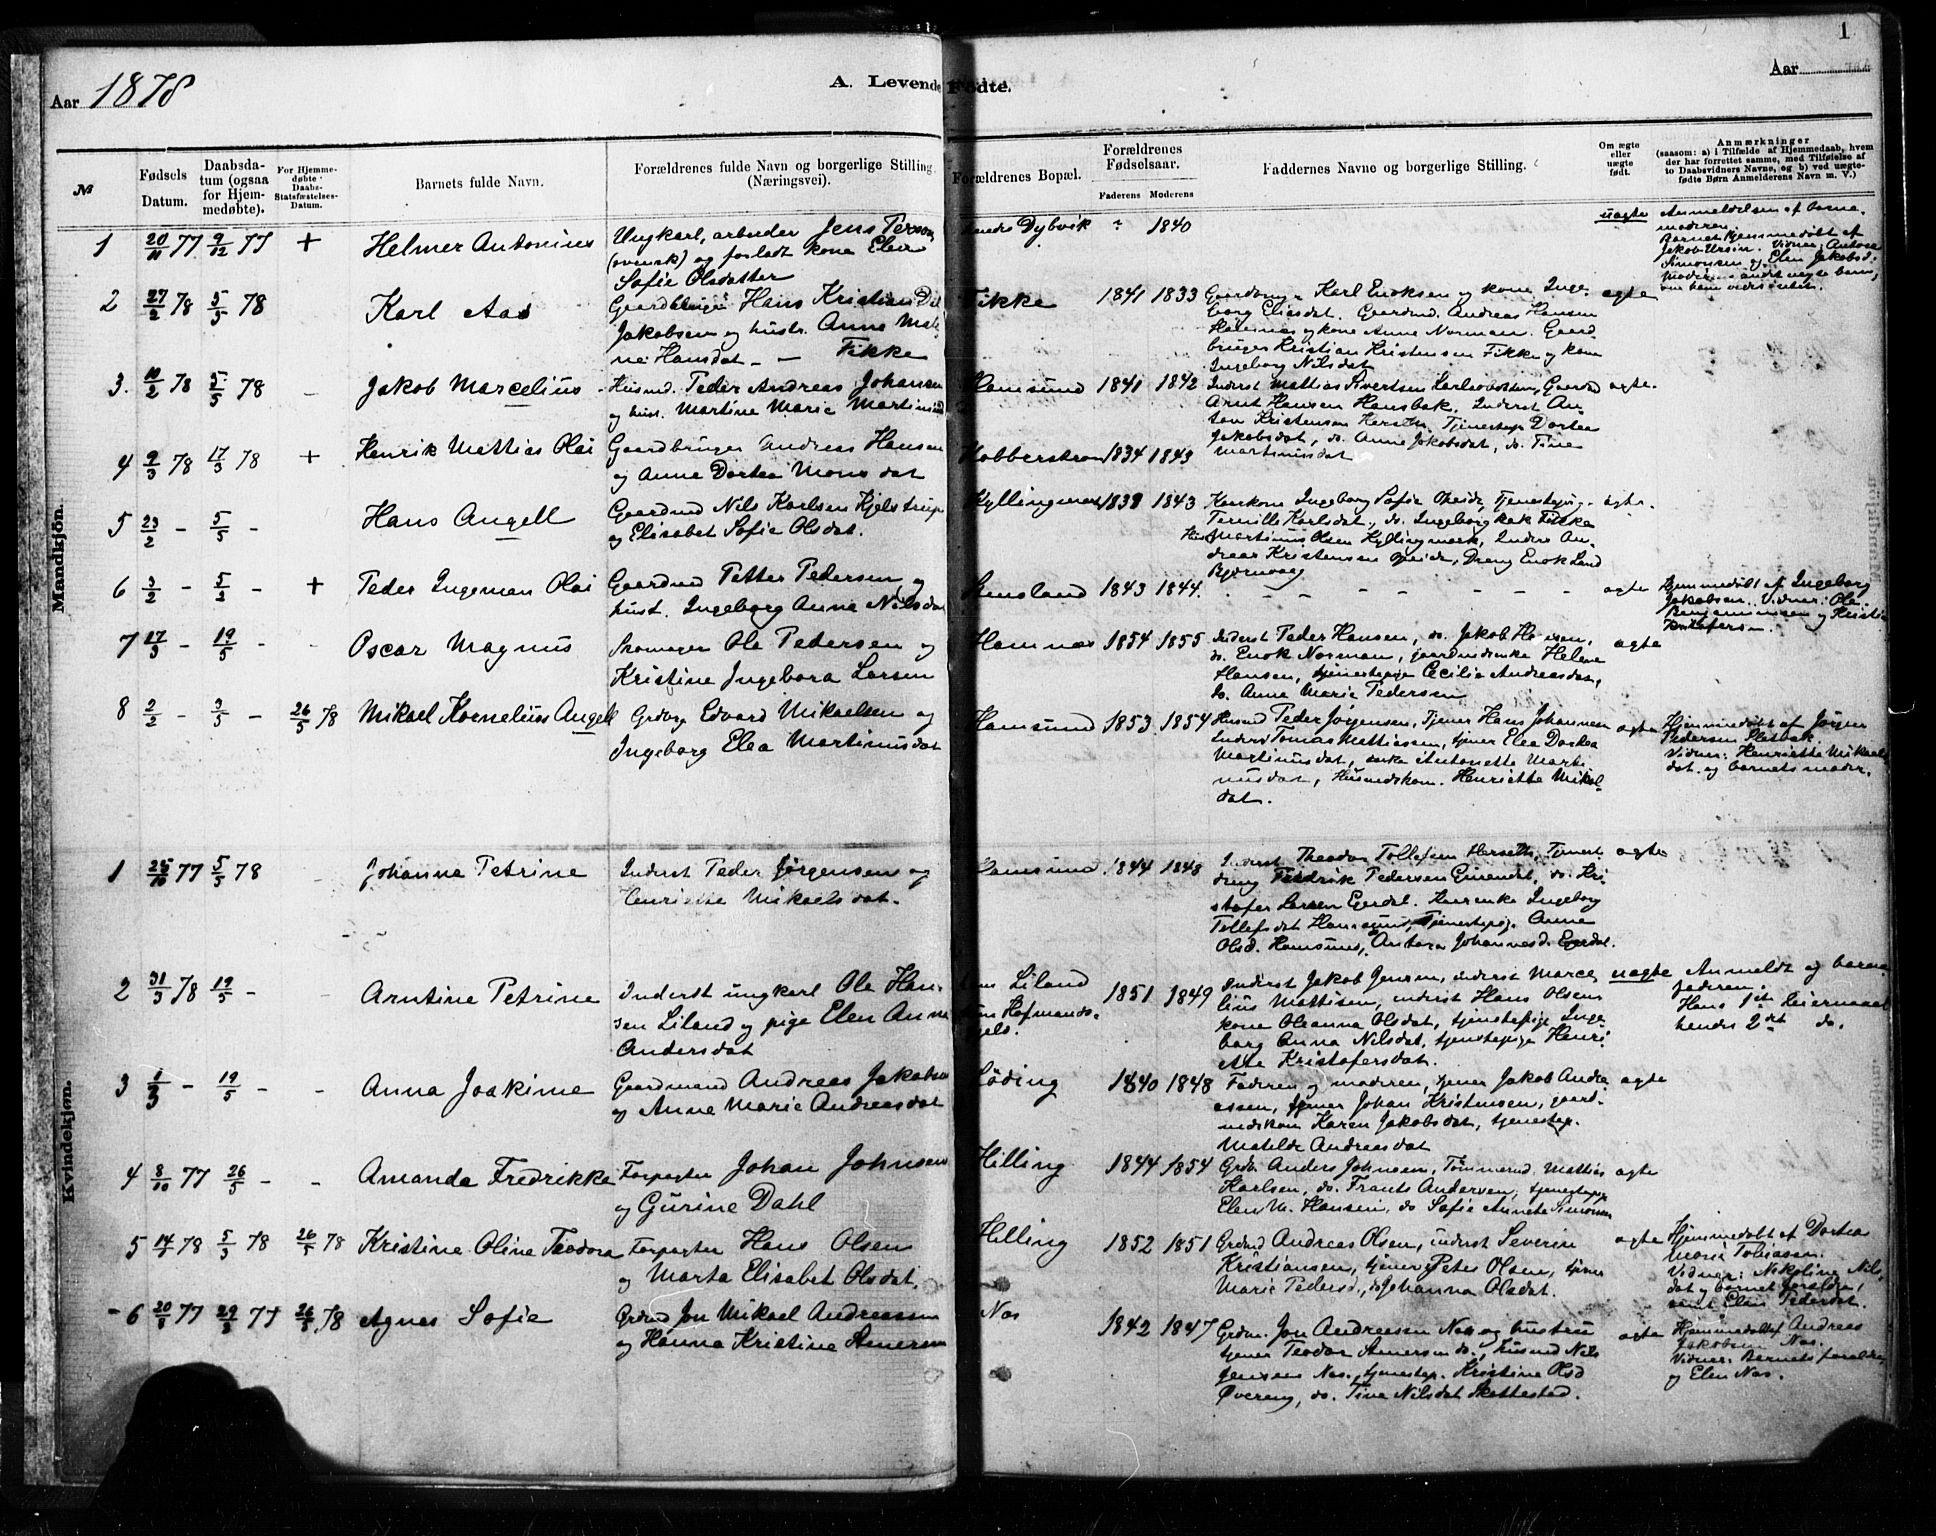 1
Aar 1878
A. Levende Fødte.
Aar
№
Fødsels Datum.
Daabsdatum (ogsaa for Hjemmedøbte).
For Hjemmedøbte Daabs-Stadfæstelses-Datum.
Barnets fulde Navn.
Forældrenes fulde Navn og borgerlige Stilling. (Næringsvei).
Forældrenes Bopæl.
Forældrenes Fødselsaar.
Faderens Moderens
Faddernes Navne og borgerlige Stilling.
Om ægte eller uægte født.
Anmærkninger
(saasom: a) i Tilfælde af Hjemmedaab, hvem
der har forrettet samme, med Tilføielse af
to Daabsvidners Navne, og b) ved uægte-
fødte Børn Anmelderens Navn m. V.)
Mandkjön.
1 20/11 77 9/12 77 + Helmer Antonius
Ungkarl, arbeider Jens Person
(svensk) og forladt kone Elen
Sofie Olsdatter
Dybvik " 1840
uægte
Anmeldelsen af barne-
moderen.
Barnet hjemmedøbt af
Jakob Ursin. Vidner: Antone
Simonsen og Elen Jakobsd.
2 27/2 78 5/5 78 Karl Aas
Gaardbruger Hans Kristian
Jakobsen og hustr. Anne Mate
ne Hansdat - — Fikke
Fikke 1841 1833
Gaardbrug. Karl Enoksen og kone Inge-
borg Eliasdat. Gaardmd. Andreas Hansen
og kone Anne Norman. Gaard
bruger Kristian Kristensen Fikke og kone
Ingeborg Nilsdat
ægte
3. 10/2 78 5/5 78 - Jakob Marcelius
Husmd. Peder Andreas Johansen
og hust. Martine Marie
Hamsund 1841 1842
Inderst Mattias Sivertsen Gaardmd
Arnt Hansen Hansbak. Inderst An-
ton Kristensen Tjenestepige Dortea
Jakobsdat, do. Anne Jakobsdat, do. Tine
Martinusdat
ægte.
4 9/3 78 17/3 78 + Henrik Mattias Olai
Gaardbruger Andreas Hansen
og Anne Dortea Monsdat
1834 1843
5 23/2 - 5/5 - Hans Angell
Gaardmd Nils Karlsen Kjelstrup
og Elisabet Sofie Olsdat.
Kyllingmark 1839 1843
Ingeborg Sofie Tjenestepig-
Pernille Karlsdat, do. Ingeborg Fikke
Martinus Olsen Kyllingmark, Inders An-
dreas Kristensen Dreng Enok
ægte.
6 3/2 - 5/2 - + Peder Ingeman Olai
Gaardmd Petter Pedersen og
hust. Ingeborg Anna Nilsdat
1843 1844.
- - - - - - -
ægte
Hjemmedøbt af Ingeborg
Jakobsen. Vidner: Ole
Benjaminsen og
7 17/3 - 19/5 - - Oscar Magnus
Skomager Ole Pedersen og
Kristine Ingebora Larsen
Hamnæs 1854 1855
Inderst Peder Hansen, do. Jakob
do. Enok Norman, gaardmdenke Helene
Hansen, tjenestepige Cecilie Andreasdat,
do. Anne Marie Pedersen
ægte
8 2/2 - 3/5 - 26/5 78 Mikael Kornelius Angell
Grdbrg Edvard Mikaelsen og
Ingeborg Elea Martinusdat
Hamsund 1853 1854
Husmd Peder Jørgensen, Tjener Hans Johannesen
Inders Tomas Mattiassen, tjener Elea Dortea
Martinusdat, enke Antonette Marti-
nusdat, Husmdskone. Henriette Mikal-
dat.
ægte
Hjemmedøbt af Jørgen
Pedersen
Vidner: Henriette Mikaels
dat. og barnets moder.
Kvindekjön.
1 25/10 77 5/5 78 - Johanna Petrine
Inderst Peder Jørgensen og
Henriette Mikaelsdat.
Hamsund 1844 1848
Inderst Theodor Tollefsen Tjenest
dreng Fredrik Pedersen do. Kri-
stofer Larsen Egerdal. Ingeborg
Tollefsdat Hamsund, Tjenestepige Anne
Olsd. Hamsund, Antora Johannesd. Egerdal.
ægte
2 31/3 78 19/5 - - Arntine Petrine
Inderst ungkarl Ole Han-
sen Liland og pige Elen Anna
Andersdat
Liland
1851 1849
Inderst Jakob Jensen, inderst Marce
lius Mattisen, inderst Hans Olsens
kone Oleanna Olsdat, tjenestepige Inge-
borg Anna Nilsdat, tjenestepige Henri-
ette Kristofersdat.
uægte
Anmeldt og barne
faderen.
Hans 1ste Leiermaal
hendes 2det do.
3 1/3 - 19/5 - - Anna Joakime
Gaardmand Andreas Jakobsen
og Anne Marie Andreasdat
Løding 1840 1848
Faderen og moderen, tjener Jakob Andre
assen, tjener Johan Kristensen, gaard-
mdskone Karen Jakobsdat, tjenestep.
Matilde Andreasdat
ægte
4 8/10 77 26/5 - - Amanda Fredrikke
Forpagter Johan Johnsen
og Gurine Dahl
Hilling 1844 1854
Grdbr. Anders Johnsen, Tømmermd. Mattias
Karlsen, do. Frants Andersen, tjenestepige
Elen M. Hansen, do Sofie Annete Simonsen
ægte
5 14/1 78 5/3 78 26/5 78 Kristine Oline Teodora
Forpagter Hans Olsen
og Marta Elisabet Olsdat.
Hilling 1852 1851
Grdmd Andreas Olsen, inderst Severin
Kristiansen, tjener Peter Olsen, tjener
Marie Pedersd., do Johanna Olsdat.
ægte
Hjemmedøbt af Dortea
Marie Tobiassen.
Vidner: Nikoline Nils-
dat og barnets forældre,
samt Elen Pedersdat.
- 6 20/8 77 29/8 77 26/5 78 Agnes Sofie
Grdmd Jon Mikael Andreassen
og Hanna Kristine Asmersen
Nos 1842 1847
Grdm. Jon Andreesen Nos og hustru
tjener Teodor Asmersen do., husmd Nils
Jensen Nos, tjenestep. Kristine Olsd
Øvereng, do. Tine Nilsdat Skottestad.
ægte
Hjemmedøbt af Andreas
Jakobsen Nos.
Vidner. Barnets forældre
og Elen Nos.